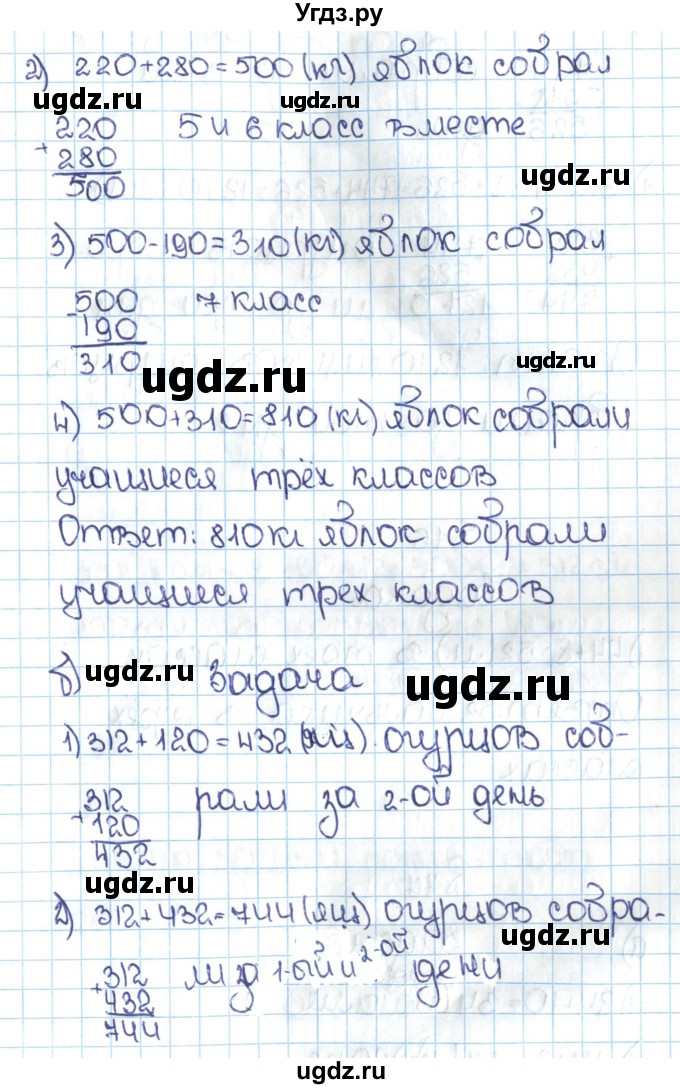 Угдз.ру
2) 220+280=500(кг) яблок собрал
ugdz.ru ugdz.ru
220 5 и 6 класс вместе
+280
500
ugdz.ru
3) 500-190=310(кг) яблок собрал
500 7 класс
-190
310
ugdz.ru
ugdz.ru
4) 500+310=810(кг) яблок собрали
учащиеся трёх классов
Ответ: 810кг яблок собрали
учащиеся трех классов
ugdz.ru
б) Задача
ugdz.ru
1) 312+120=432(ящ) огурцов соб-
312 рали за 2-ой день
+120
432
ugdz.ru
2) 312+432=744(ящ) огурцов собра-
ugdz.ru
312 ли за 1-ый и 2-ой дени
+432
744
ugdz.ru